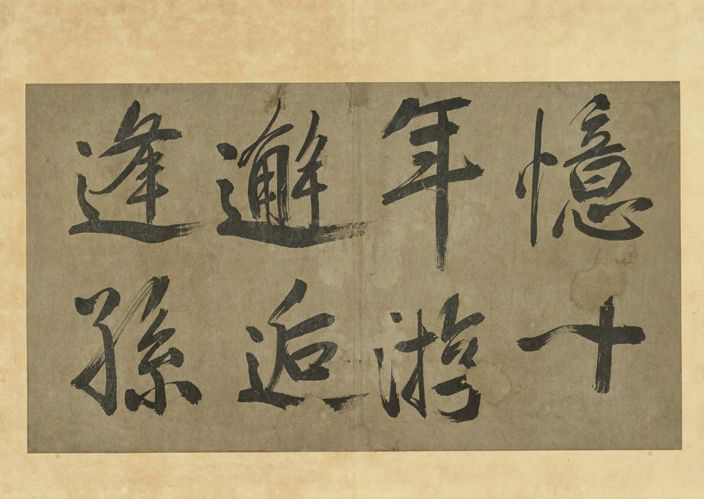 憶十
年游
邂逅
逢孫